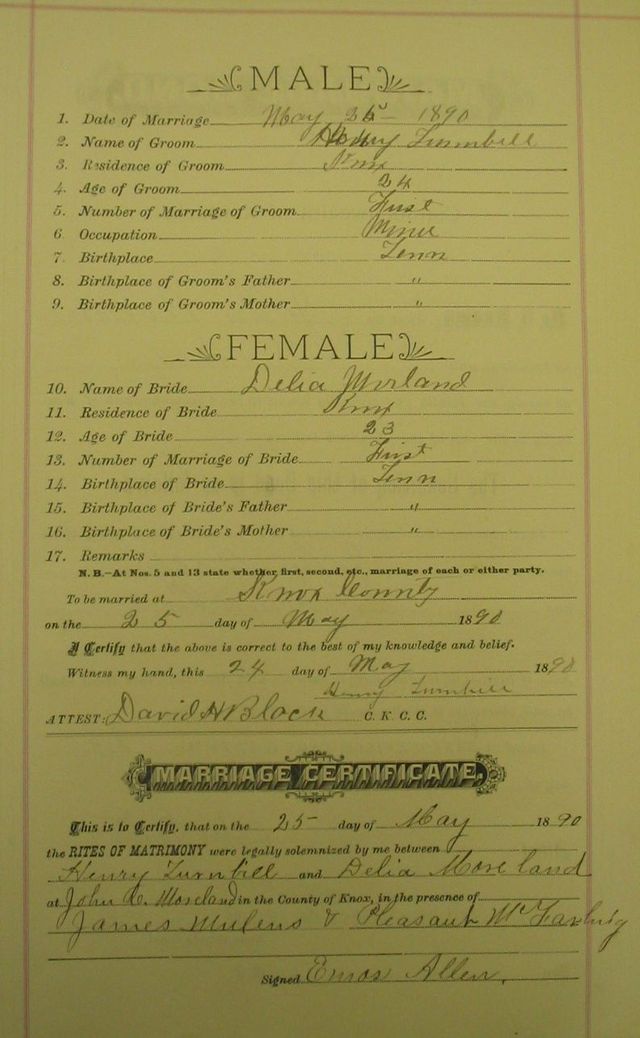 MALE
1. Date of Marriage May 25 - 1890
2. Name of Groom Henry Turnbill
3. Residence of Groom Knox
4. Age of Groom 24
5. Number of Marriage of Groom First
6. Occupation Miner
7. Birthplace Tenn
8. Birthplace of Groom's Father "
9. Birthplace of Groom's Mother "
FEMALE
10. Name of Bride Delia Morland
11. Residence of Bride Knox
12. Age of Bride 23
13. Number of Marriage of Bride First
14. Birthplace of Bride Tenn
15. Birthplace of Bride's Father "
16. Birthplace of Bride's Mother "
17. Remarks
N. B.—At Nos. 5 and 13 state whether first, second, etc., marriage of each or either party.
To be married at Knox County
on the 25 day of May 1890
I Certify that the above is correct to the best of my knowledge and belief.
Witness my hand, this 24 day of May 1890
Henry Turnbill
ATTEST: David H Black C. K. C. C.
MARRIAGE CERTIFICATE.
This is to Certify, that on the 25 day of May 1890
the RITES OF MATRIMONY were legally solemnized by me between
Henry Turnbill and Delia Moreland
at John Moreland in the County of Knox, in the presence of
James Mulens & Pleasant
Signed Allen.